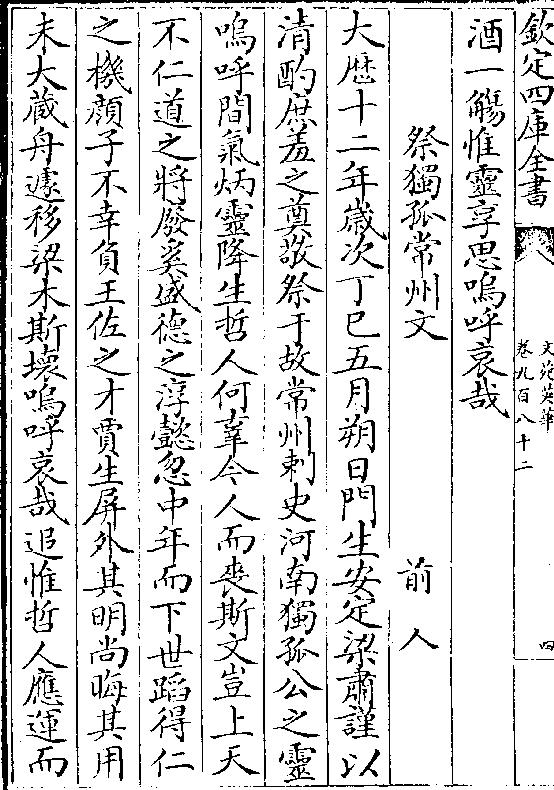 欽定四庫全書
文苑英華
卷九百八十二
四
酒一觴惟靈享思嗚呼哀哉
祭獨孤常州文 前人
大歴十二年歳次丁巳五月朔日門生安定梁肅謹以
清酌庶羞之奠敬祭于故常州刺史河南獨孤公之靈
嗚呼間氣炳靈降生哲人何辜今人而喪斯文豈上天
不仁道之將廢奚盛德之淳懿忽中年而下世蹈得仁
之機顔子不幸負王佐之才賈生屏外其明尚晦其用
未大蔵舟遽移梁木斯壞嗚呼哀哉追惟哲人應運而